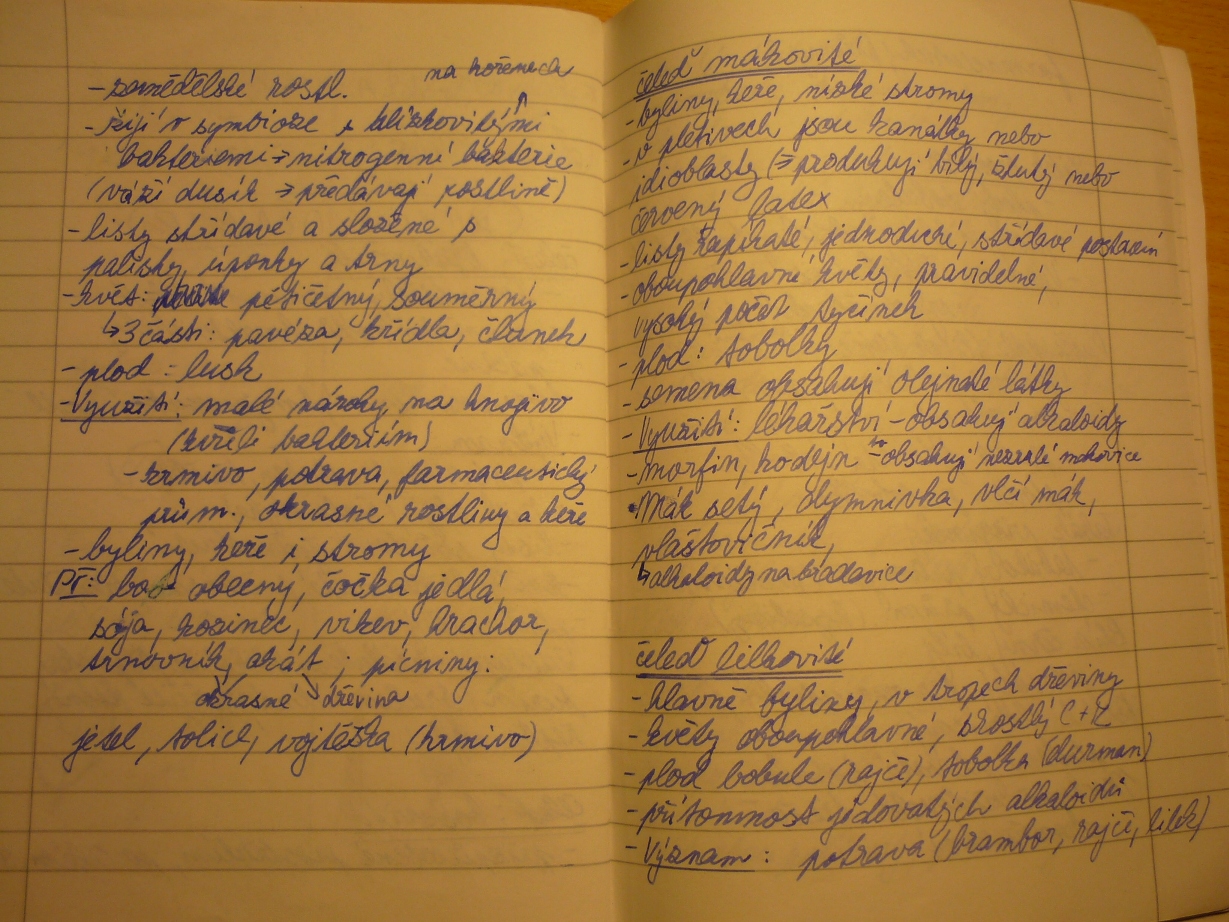 na kořenech
- zemědělské rostl.
- žijí v symbióze s hlízkovitými
bakteriemi → nitrogenní bakterie
(váží dusík → předávají rostlině)
- listy střídavé a složené s
palisty, úponky a trny
- květ: pětičetný, souměrný
↳ 3 části: pavéza, křídla, člunek
- plod: lusk
- Využití: malé nároky na hnojivo
(kvůli bakteriím)
- krmivo, potrava, farmaceutický
prům., okrasné rostliny a keře
- byliny, keře i stromy
Př: bob obecný, čočka jedlá,
sója, kozinec, vikev, hrachor,
trnovník, akát ; pícniny:
okrasné dřevina
jetel, tolice, vojtěška (krmivo)
čeleď mákovité
- byliny, keře, nízké stromy
- v pletivech jsou kanálky nebo
idioblasty (→ produkují bílý, žlutý nebo
červený latex
- listy řapíkaté, jednoduché, střídavé postavení
- oboupohlavné květy, pravidelné,
vysoký počet tyčinek
- plod: tobolky
- semena obsahují olejnaté látky
- Využití: lékařství - obsahují alkaloidy
- morfin, kodein - to obsahují nezralé makovice
• Mák setý, dymnivka, vlčí mák,
vlaštovičník,
↳ alkaloidy na bradavice
čeleď lilkovité
- hlavně byliny, v tropech dřeviny
- květy oboupohlavné, srostlý C + K
- plod bobule (rajče), tobolka (durman)
- přítomnost jedovatých alkaloidů
- Význam: potrava (brambor, rajče, lilek)